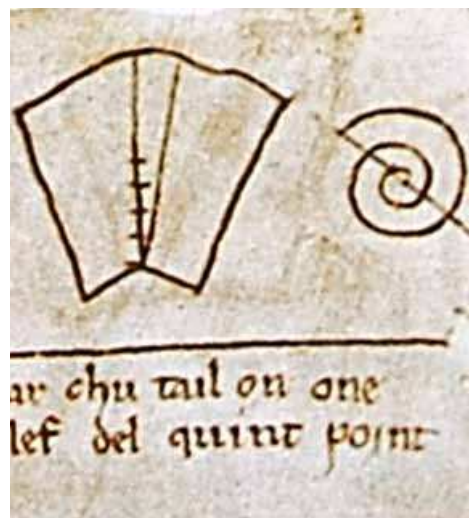 ar chu tail on one
lef del quint point